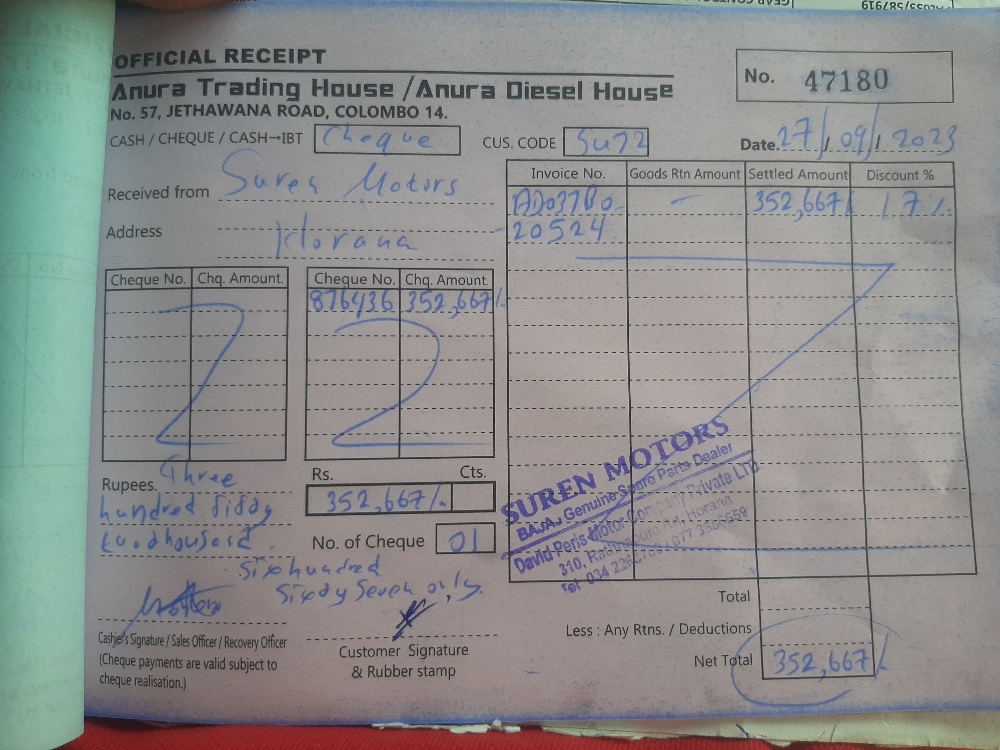 OFFICIAL RECEIPT
Anura Trading House / Anura Diesel House
No. 57, JETHAWANA ROAD, COLOMBO 14.
No. 47180
CASH / CHEQUE / CASH→IBT Cheque
CUS. CODE Su72
Date. 27/09/2023
Received from Suren Motors
Address Horana
Invoice No. Goods Rtn Amount Settled Amount Discount %
AD03780 - 352,667/- 17%
20524
Cheque No. Chq. Amount. Cheque No. Chq. Amount.
876436 352,667/-
Rupees. Three
hundred fifty
two thousand
Six hundred
Sixty Seven only.
Rs. Cts.
352,667/-
No. of Cheque 01
SUREN MOTORS
BAJAJ Genuine Spare Parts Dealer
David Peris Motor Company Private Ltd
310, Horana
Tel 034
Cashier's Signature / Sales Officer / Recovery Officer
(Cheque payments are valid subject to
cheque realisation.)
Customer Signature
& Rubber stamp
Total
Less : Any Rtns. / Deductions
Net Total 352,667/-